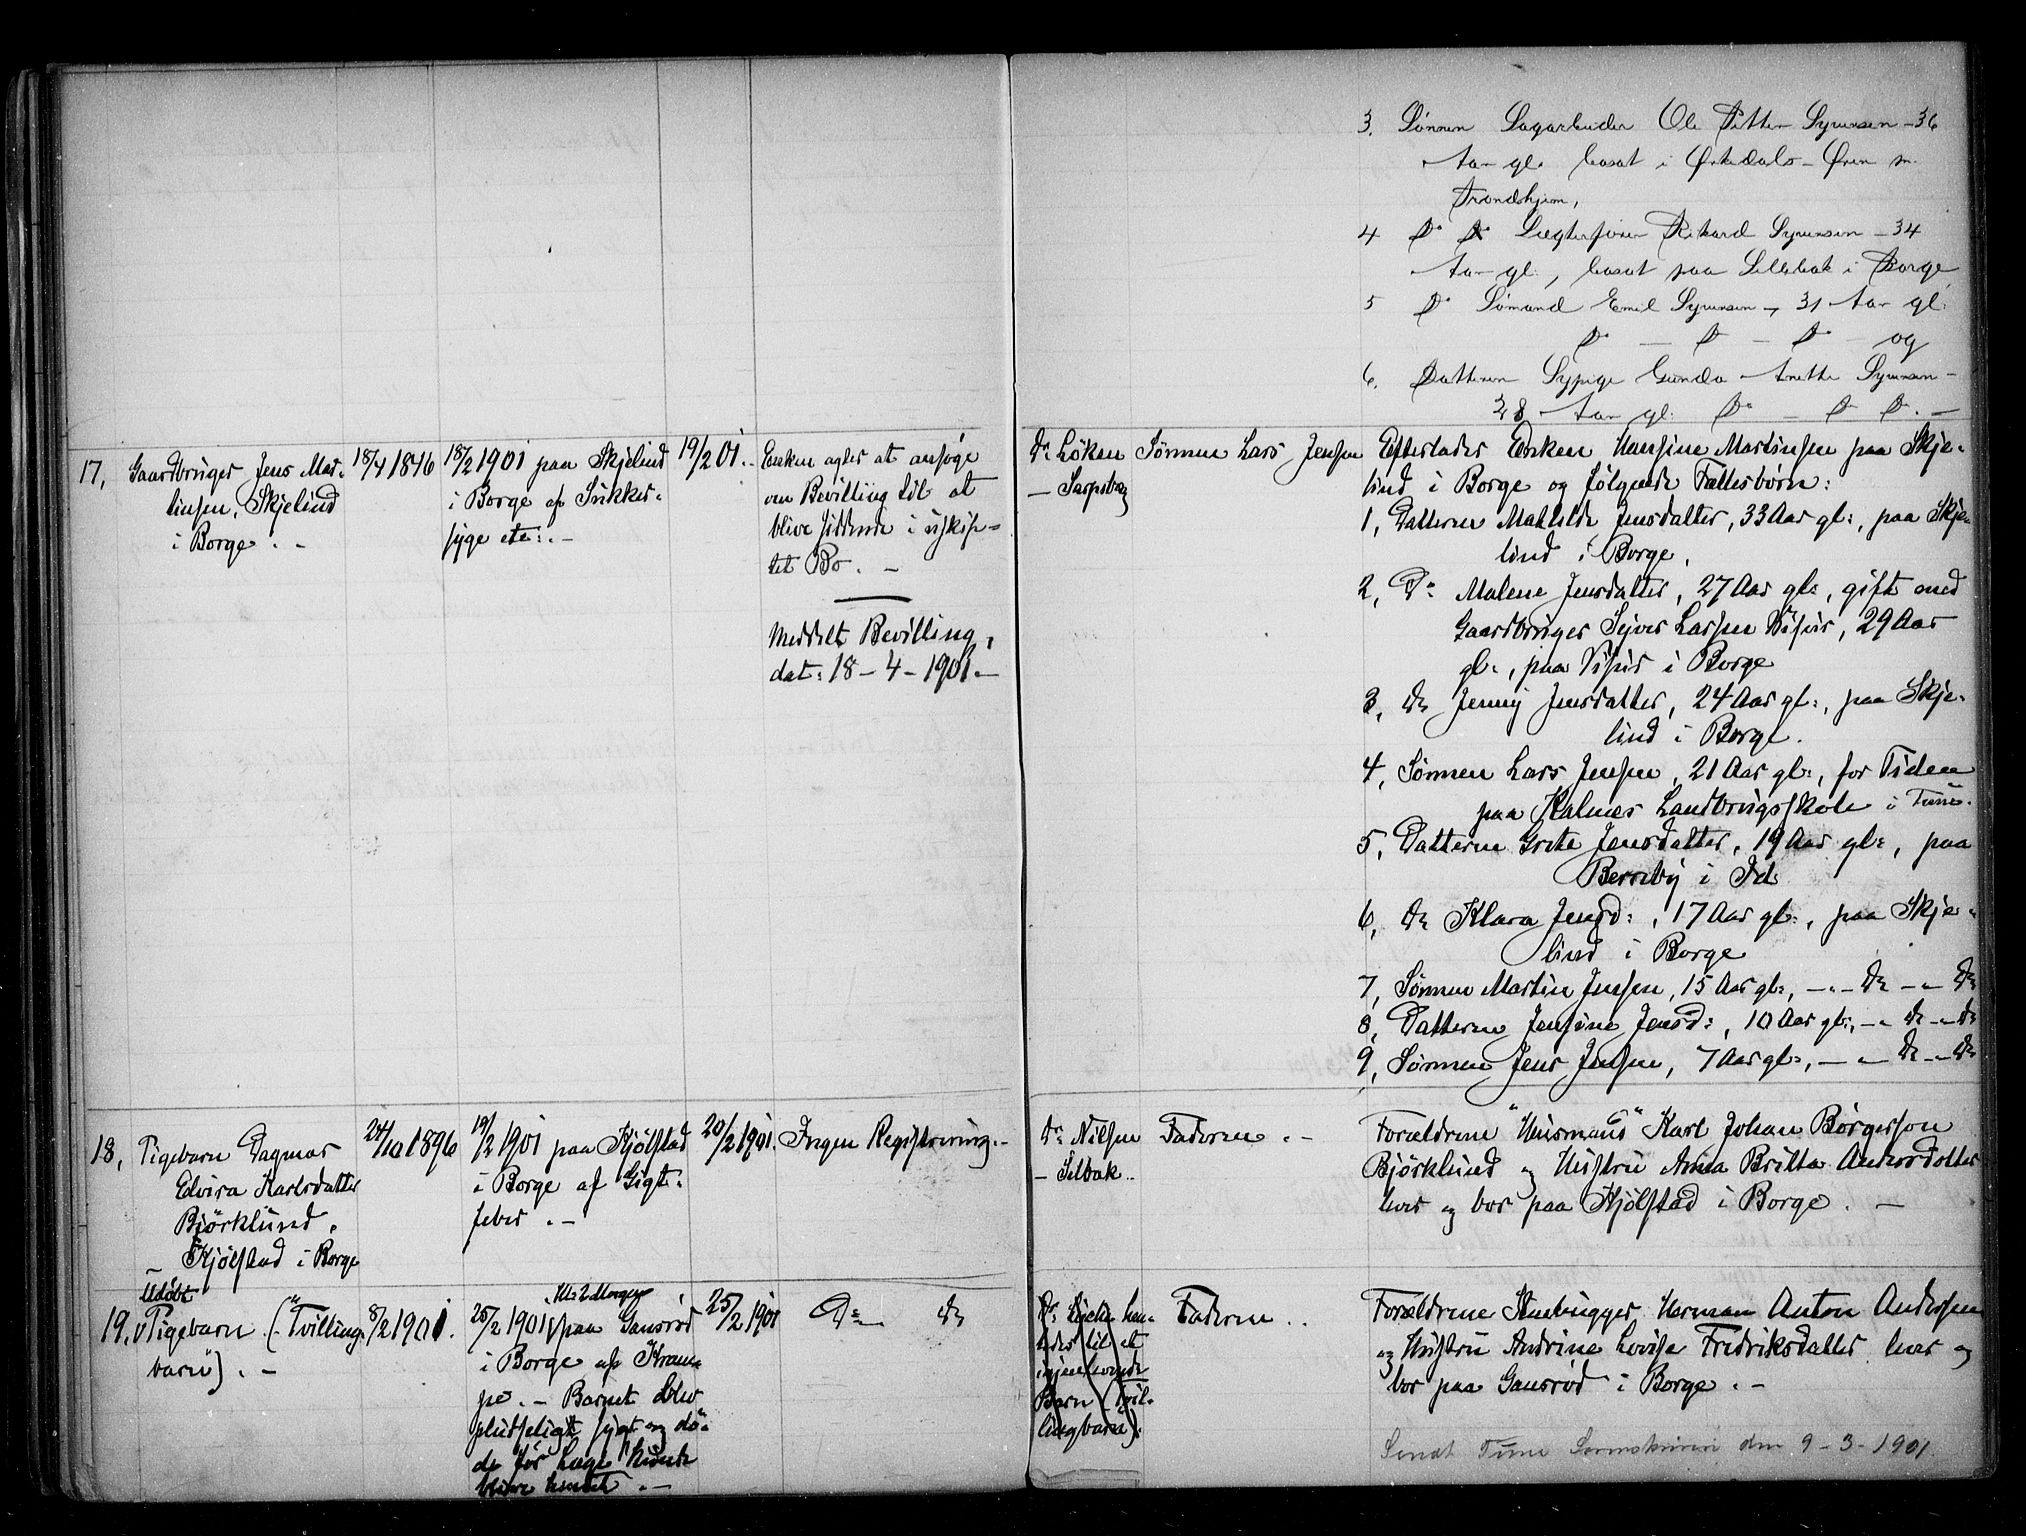 3. Sønnen Sagarbeider Ole Petter Syversen – 36
Aar gl. bosat i Orkedals-Øren
Trondhjem,
4 Do Rikard Syversen – 34
Aar gl., bosat paa Lillebak i Borge
5 Do Sømand Emil Syversen, 31 Aar gl:
Do — Do — Do og
6. Datteren Sypige Gunda Anette Syversen –
28 Aar gl. Do — Do Do. —
17, Gaardbruger Jens Mar-
tinsen, Skjelind
i Borge. –
18/4 1846
18/2 1901 paa Skjelind
i Borge af Sukker-
syge etc:. –
19/2 01. –
Enken agter at ansøge
om Bevilling til at
blive siddende i uskif-
tet Bo. –
Meddelt Bevilling,
dat: 18 – 4 – 1901. –
Dr Løken
– Sarpsborg
Sønnen Lars Jensen
Efterlader Enken Hansine Martinsen paa Skje-
lind i Borge og følgende Fællesbørn:
1, Datteren Mathilde Jensdatter, 33 Aar gl:, paa Skje-
lind i Borge.
2, Do Malene Jensdatter, 27 Aar gl:, gift med
Gaardbruger Sejver Larsen Visur, 29 Aar
gl:, paa Visur i Borge
3, Do Jenny Jensdatter, 24 Aar gl:, paa Skje-
lind i Borge.
4, Sønnen Lars Jensen, 21 Aar gl:, for Tiden
paa Kalnæs Landbrugsskole i Tune.
5, Datteren Grete Jensdatter, 19 Aar gl:, paa
Berreby i Id
6, Do Klara Jensd:, 17 Aar gl:, paa Skje-
lind i Borge
7, Sønnen Martin Jensen, 15 Aar gl:, – „ – Do – „ Do
8, Datteren Jensine Jensd:, 10 Aar gl:, – „ Do – „ Do
9, Sønnen Jens Jensen, 7 Aar gl:, – „ – Do – „ Do
18, Pigebarn Dagmar
Elvira Karlsdatter
Bjørklund.
Kjølstad i Borge
24/10 1896
19/2 1901 paa Kjølstad
i Borge af Gigt-
feber. –
20/2 1901.
Ingen Registrering. –
Dr Nilsen
– Selbak.
Faderen. –
Forældrene "Husmand" Karl Johan Börgesson
Bjørklund og Hustru Anna Britta Andersdotter
lever og bor paa Kjølstad i Borge. –
Udøbt
19, Pigebarn. ("Tvilling-
barn"). –
8/2 1901.
Kl. 2 Morgen
25/2 1901 paa Gansrød
i Borge af Kram-
pe. – Barnet blev
pludseligt sygt og dø-
de før Læge kunde
blive hentet. –
25/2 1901
Do Do
Dr Løchen hen-
tedes til et
igjenlevende
Barn (Tvil-
lingbarn).
Faderen. .
Forældrene Stenhugger Herman Anton Andersen
og Hustru Andrine Lovise Fredriksdatter lever og
bor paa Gansrød i Borge. –
Sendt Tune Sorenskriveri den 9 – 3 – 1901.